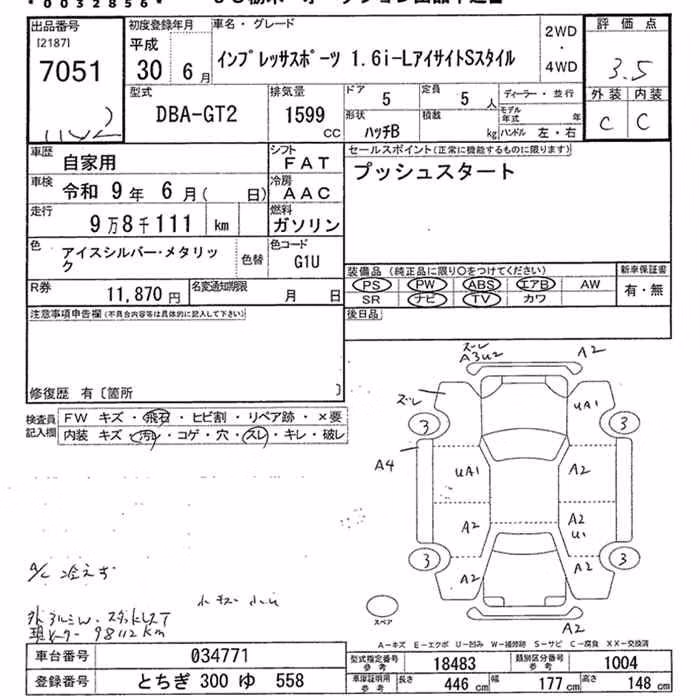 *0032856*
出品番号
[2187]
7051
初度登録年月
平成
30 6月
車名・グレード
インプレッサスポーツ 1.6i-LアイサイトSスタイル
2WD
・
4WD
評価点
3.5
外装 内装
C C
型式
DBA-GT2
排気量
1599
CC
ドア
5
定員
5人
ディーラー・並行
モデル年式 年
形状
ハッチB
積載
kg
ハンドル 左・右
車歴
自家用
シフト
FAT
セールスポイント(正常に機能するものに限ります)
プッシュスタート
車検
令和 9年 6月( 日)
冷房
AAC
走行
9万8千111 km
燃料
ガソリン
色
アイスシルバー・メタリック
色替
色コード
G1U
R券
11,870円
名変通知期限
月 日
装備品(純正品に限り○をつけてください)
PS PW ABS エアB AW
SR ナビ TV カワ
新車保証書
有・無
後日品
注意事項申告欄(不具合内容等は具体的に記入して下さい)
修復歴 有〔箇所 〕
検査員
記入欄
FW キズ・飛石・ヒビ割・リペア跡・×要
内装 キズ・汚レ・コゲ・穴・スレ・キレ・破レ
ズレ
A3U2
A2
ズレ
UA1
3
3
A4
UA1
A2
A2
A2
U1
3
3
A2
A2
A2
スペア
A/C 冷えず
98112km
A-キズ E-エクボ U-凹み W-補修跡 S-サビ C-腐食 XX-交換済
車台番号
034771
登録番号
とちぎ 300 ゆ 558
型式指定番号
参考
18483
類別区分番号
参考
1004
車庫証明用
参考
長さ
446 cm
幅
177 cm
高さ
148 cm